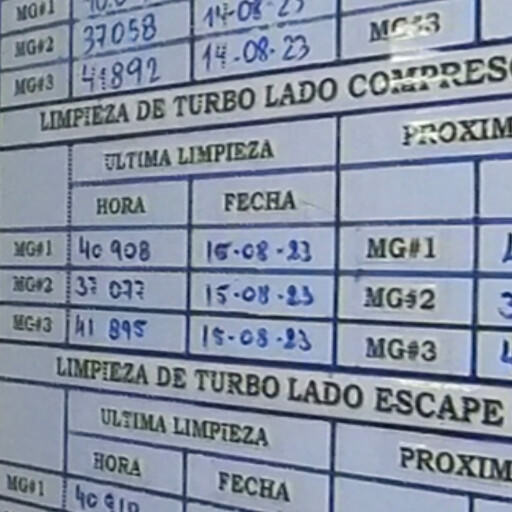 MG#1
MG#2 37058 14-08-23 MG#3
MG#3 41892 14-08-23
LIMPIEZA DE TURBO LADO
ULTIMA LIMPIEZA
HORA FECHA
MG#1 40 908 15-08-23 MG#1
MG#2 37 077 15-08-23 MG#2
MG#3 41 895 15-08-23 MG#3
LIMPIEZA DE TURBO LADO ESCAPE
ULTIMA LIMPIEZA
HORA FECHA
MG#1 40 910